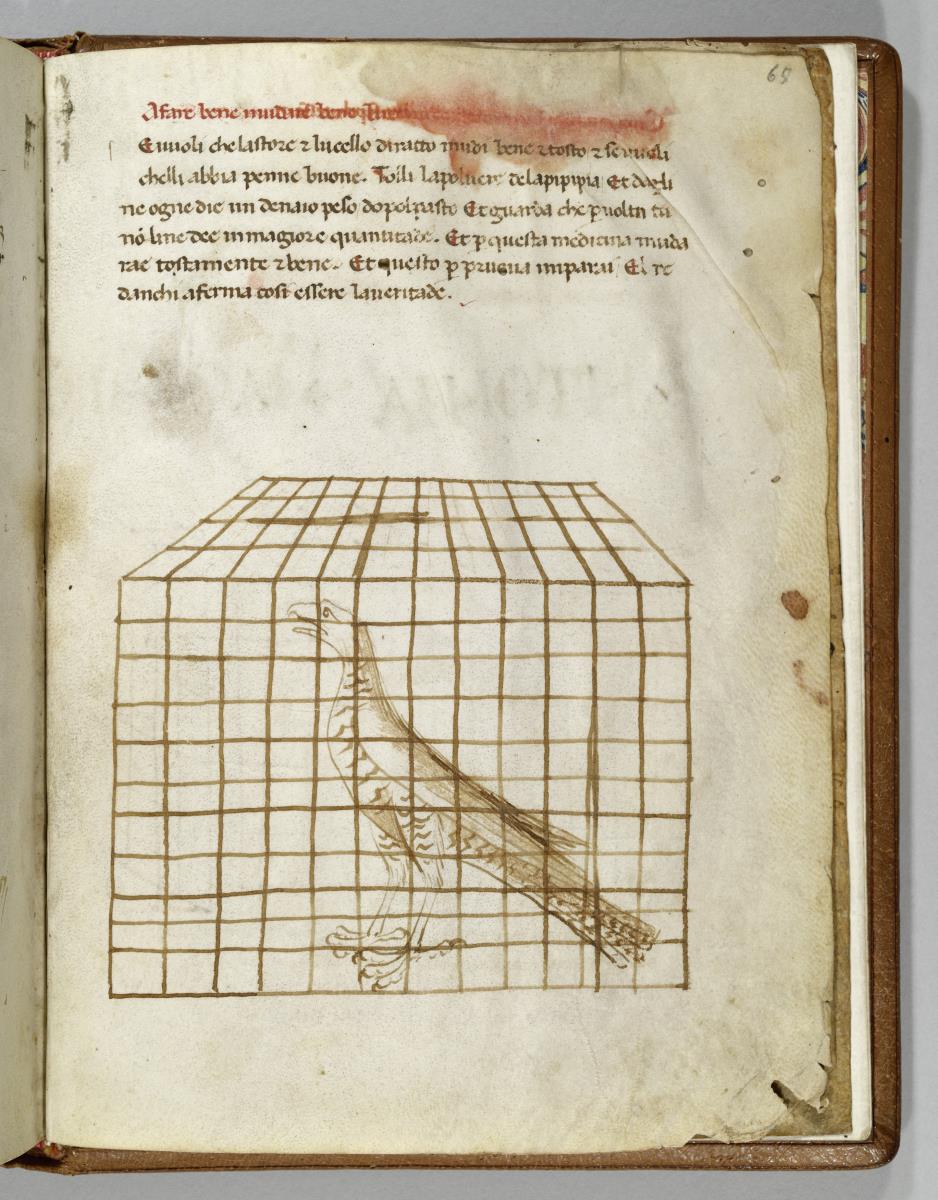 65
A fare bene mudare bene
E uuoli che lastore ⁊ lucello diratto mudi bene ⁊ tosto ⁊ se uuoli
chelli abbia penne buone. Toili la poluere de la pipipia Et dagli
ne ogne die un denaio peso do pol pasto Et guarda che p uolta tu
nō line dee in magiore quantitade. Et p questa medicina muda
rae tostamente ⁊ bene. Et questo p prugua imparai El re
danchi aferma cosi essere la ueritade.